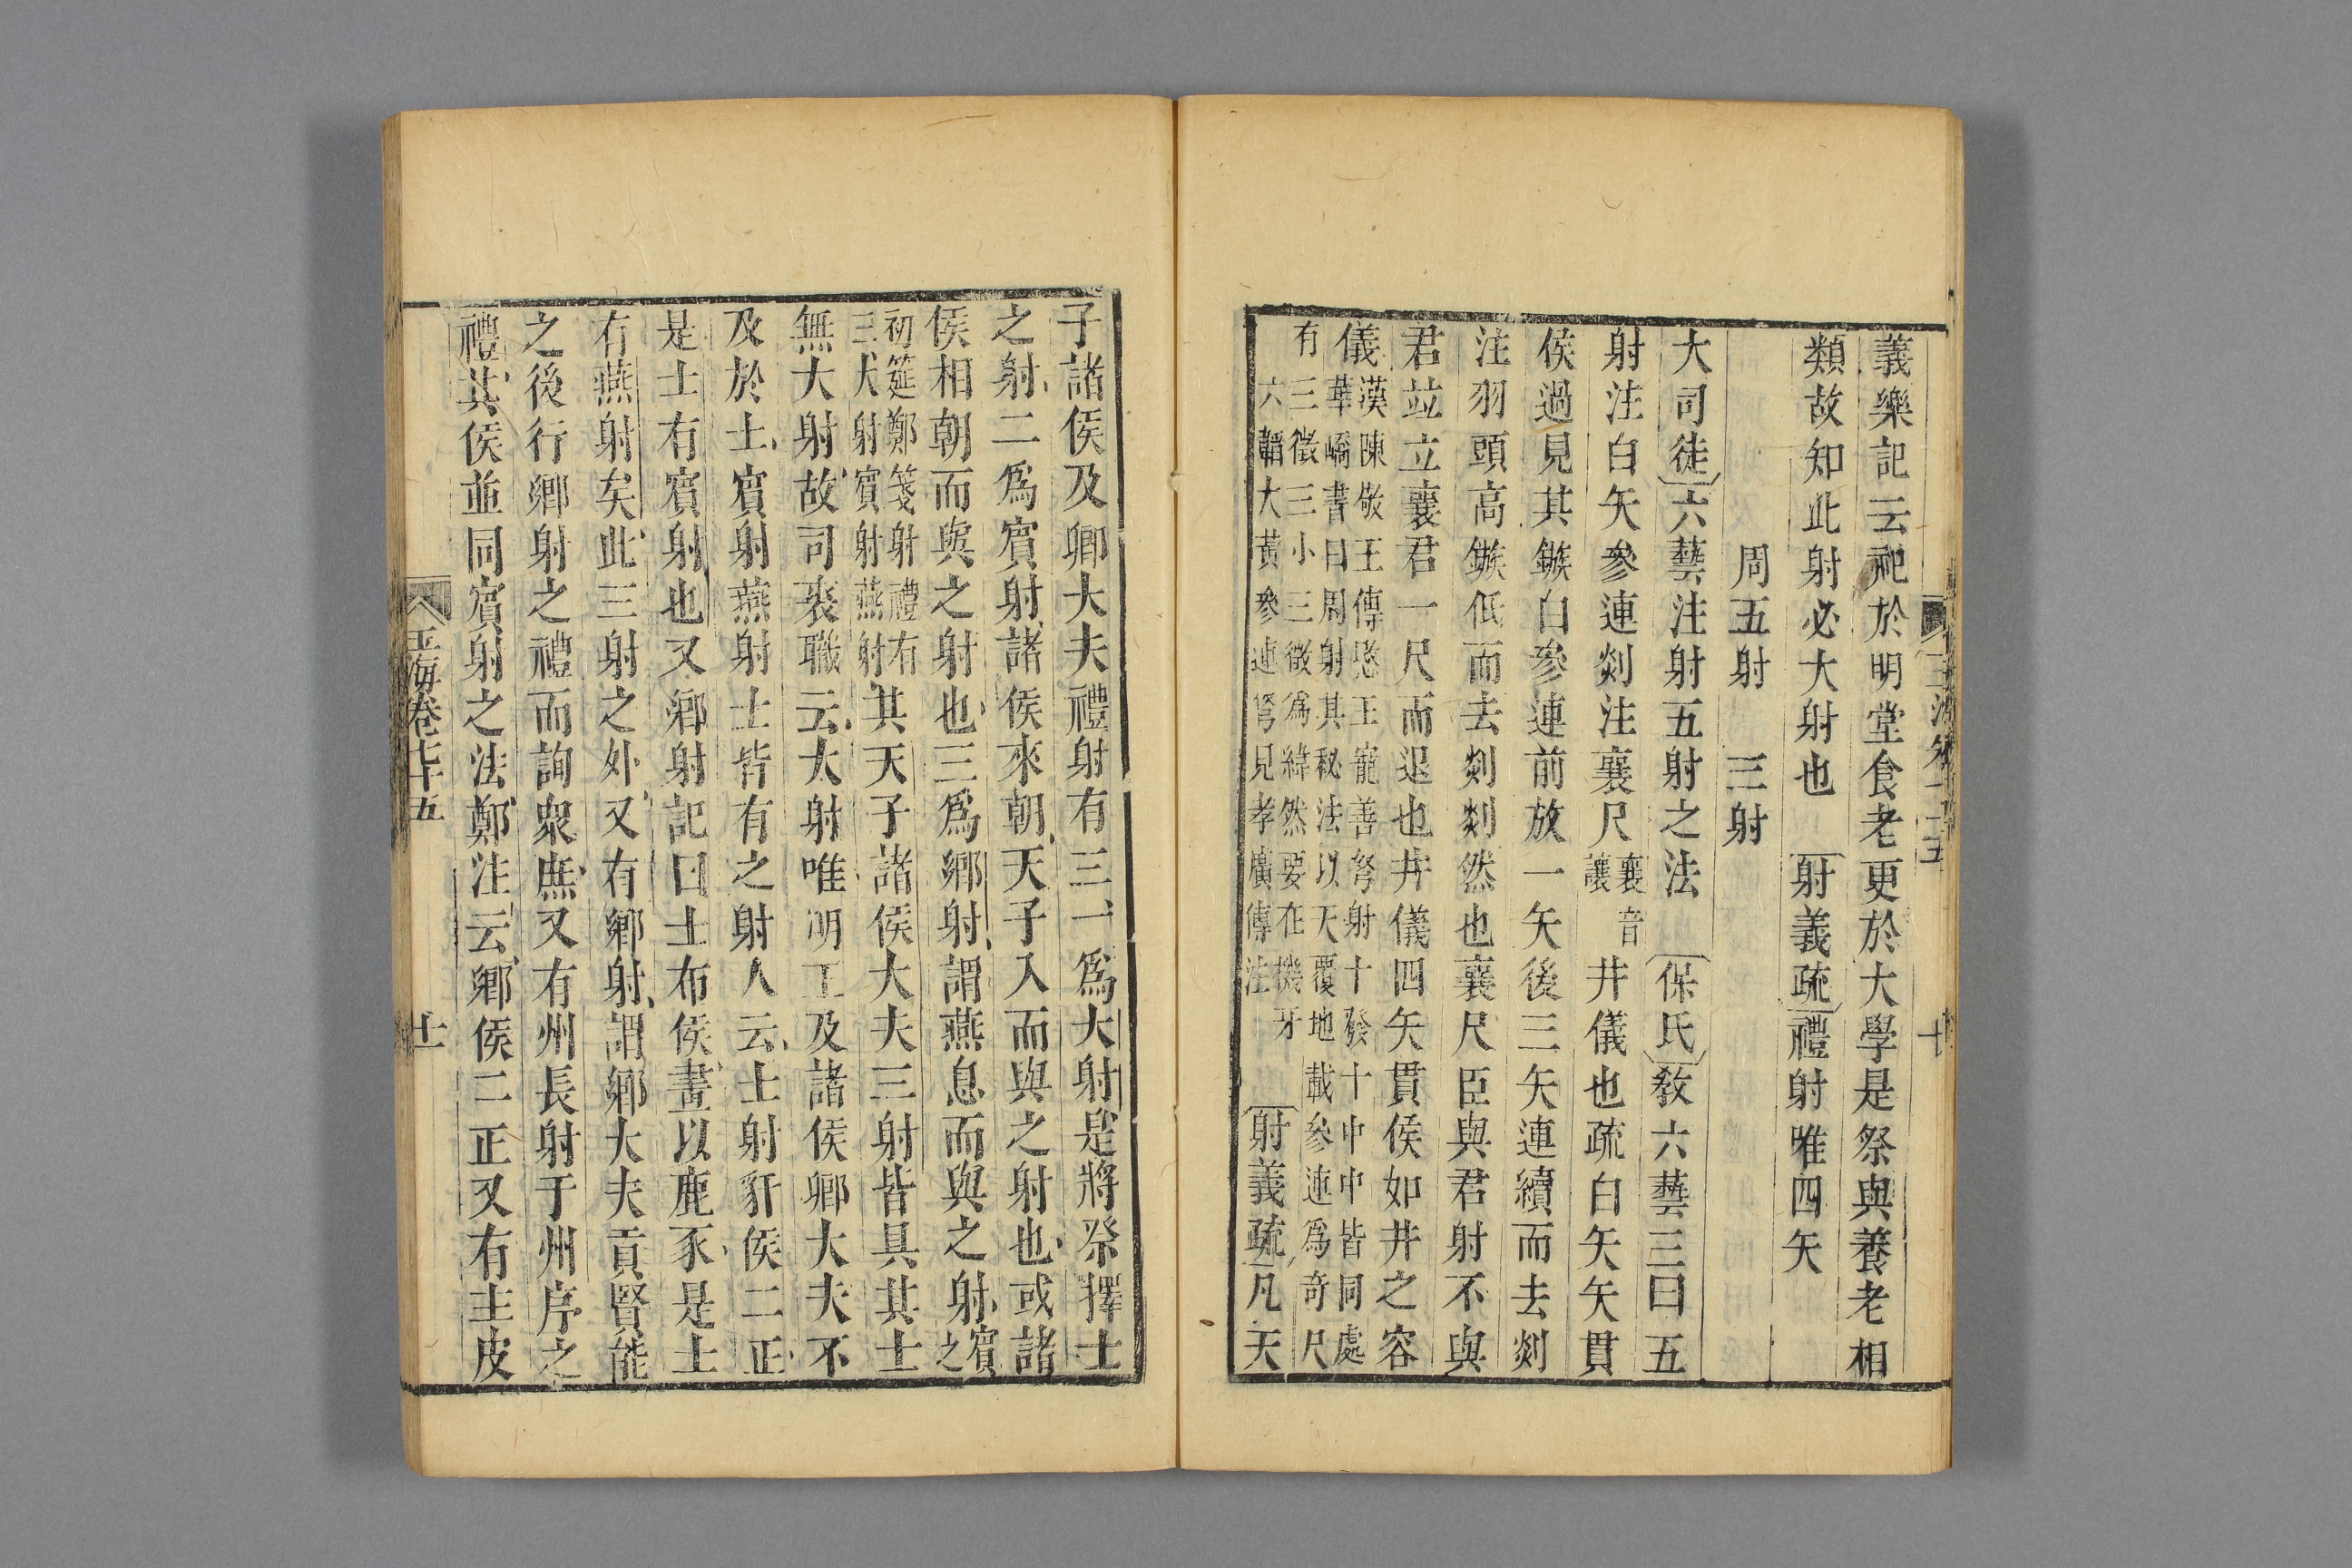 義樂記云祀於明堂食老更於大學是祭與養老相
類故知此射必大射也射義疏禮射唯四矢
周五射 三射
大司徒六藝注射五射之法保氏教六藝三曰五
射注白矢參連剡注襄尺襄音讓井儀也疏白矢矢貫
侯過見其鏃白參連前放一矢後三矢連續而去剡
注羽頭高鏃低而去剡剡然也襄尺臣與君射不與
君竝立襄君一尺而退也井儀四矢貫侯如井之容
儀漢陳敬王傳愍王寵善弩射十發十中中皆同處
華嶠書曰寵射其秘法以天覆地載參連爲奇
有三微三小三微爲經然要在機牙
六韜大黃參連弩見孝廣傳注射義疏凡天
子諸侯及卿大夫禮射有三一爲大射是將祭擇士
之射二爲賓射諸侯來朝天子入而與之射也或諸
侯相朝而與之射也三爲鄉射謂燕息而與之射賓之
初筵鄭箋射禮有三大射賓射燕射其天子諸侯大夫三射皆具其士
無大射故司裘職云大射唯明王及諸侯卿大夫不
及於士賓射燕射士皆有之射人云士射豻侯二正
是士有賓射也又鄉射記曰士布侯畫以鹿豕是士
有燕射矣此三射之外又有鄉射謂鄉大夫貢賢能
之後行鄉射之禮而詢衆庶又有州長射于州序之
禮其侯並同賓射之法鄭注云鄉侯二正又有主皮
玉海卷七十五
十一